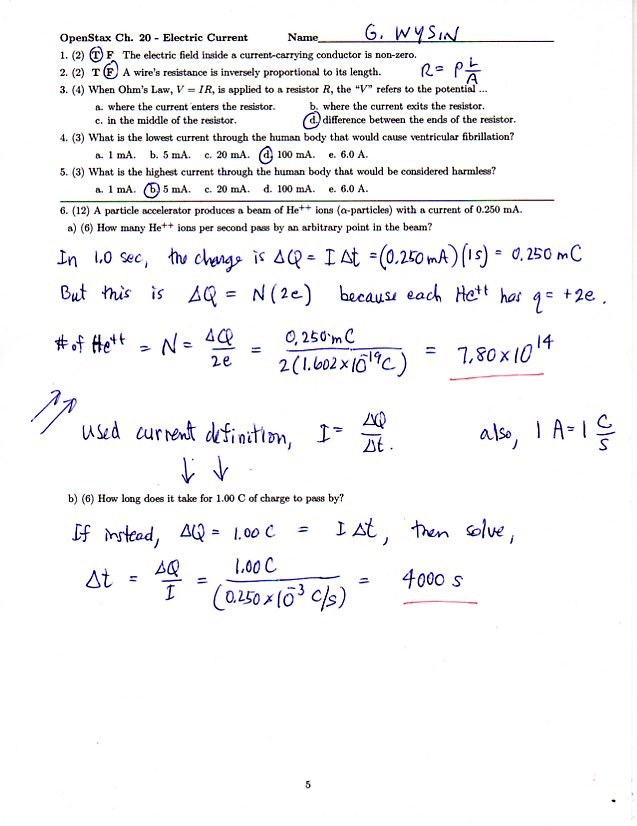 OpenStax Ch. 20 - Electric Current Name G. WYSIN
1. (2) T F The electric field inside a current-carrying conductor is non-zero.
2. (2) T F A wire's resistance is inversely proportional to its length. R = ρ L/A
3. (4) When Ohm's Law, V = IR, is applied to a resistor R, the "V" refers to the potential ...
a. where the current enters the resistor. b. where the current exits the resistor.
c. in the middle of the resistor. d. difference between the ends of the resistor.
4. (3) What is the lowest current through the human body that would cause ventricular fibrillation?
a. 1 mA. b. 5 mA. c. 20 mA. d. 100 mA. e. 6.0 A.
5. (3) What is the highest current through the human body that would be considered harmless?
a. 1 mA. b. 5 mA. c. 20 mA. d. 100 mA. e. 6.0 A.
6. (12) A particle accelerator produces a beam of He⁺⁺ ions (α-particles) with a current of 0.250 mA.
a) (6) How many He⁺⁺ ions per second pass by an arbitrary point in the beam?
In 1.0 sec, the charge is ΔQ = I Δt = (0.250 mA)(1s) = 0.250 mC
But this is ΔQ = N(2e) because each He⁺⁺ has q = +2e.
# of He⁺⁺ = N = ΔQ/2e = 0.250 mC / 2(1.602×10⁻¹⁹C) = 7.80×10¹⁴
Used current definition, I = ΔQ/Δt. also, 1 A = 1 C/s
b) (6) How long does it take for 1.00 C of charge to pass by?
If instead, ΔQ = 1.00 C = I Δt, then solve,
Δt = ΔQ/I = 1.00 C / (0.250×10⁻³ C/s) = 4000 s
5